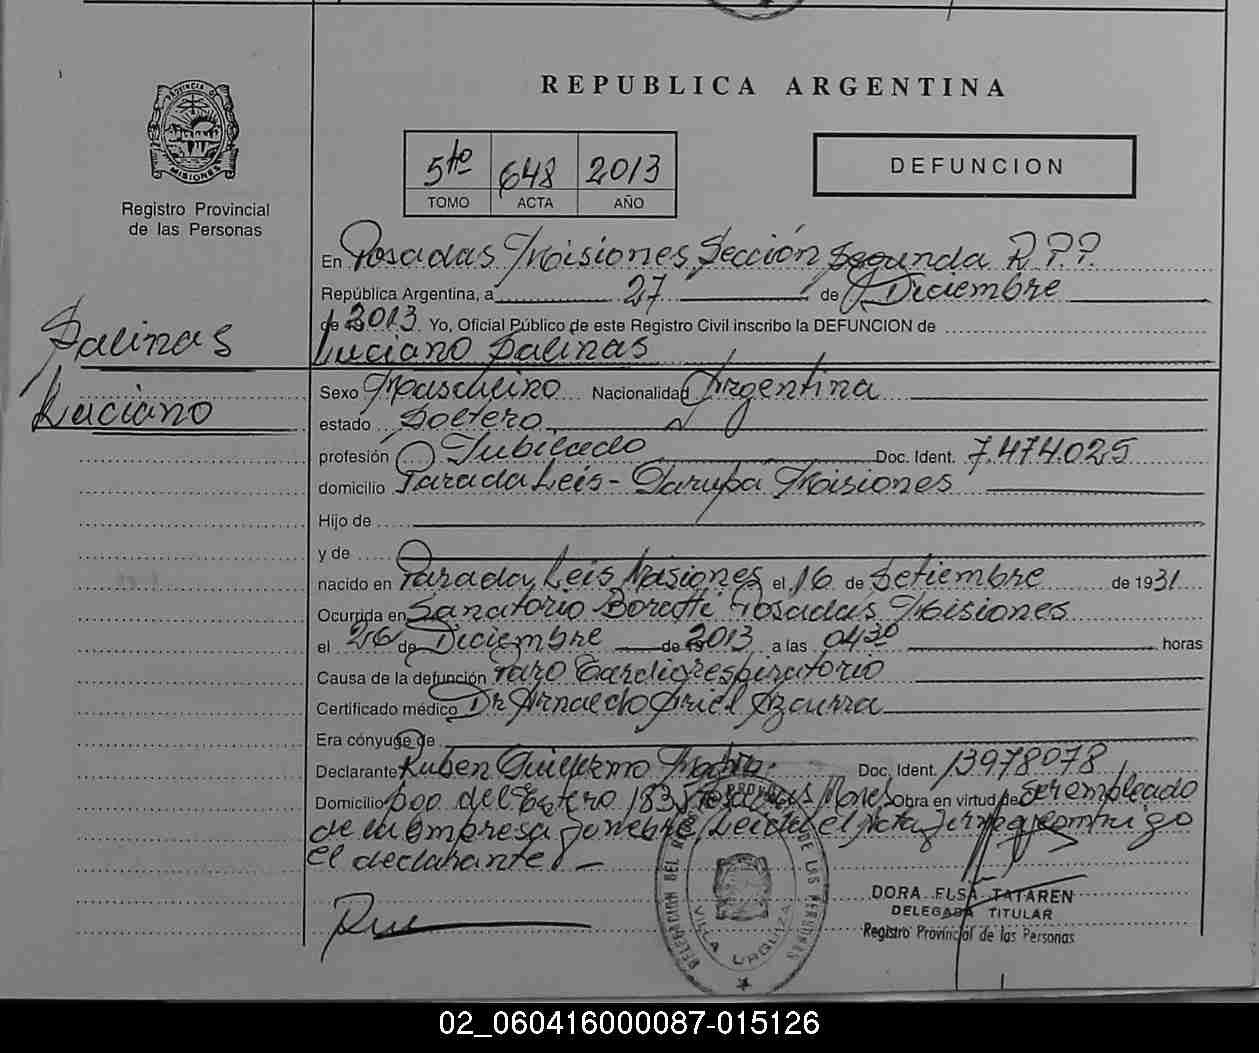 REPUBLICA ARGENTINA
PROVINCIA DE
MISIONES
Registro Provincial
de las Personas
5to 648 2013
TOMO ACTA AÑO
DEFUNCION
En Posadas Misiones Sección Segunda R.P.P.
República Argentina, a 27 de Diciembre
de 2013 Yo, Oficial Público de este Registro Civil inscribo la DEFUNCION de
Luciano Salinas
Salinas
Luciano
Sexo Masculino Nacionalidad Argentina
estado Soltero
profesión Jubilado Doc. Ident. 7.474.025
domicilio Parada Leis - Garupa Misiones
Hijo de
y de
nacido en Parada Leis Misiones el 16 de Setiembre de 1931
Ocurrida en Sanatorio Boratti Posadas Misiones
el 26 de Diciembre de 2013 a las 0430 horas
Causa de la defunción Paro Cardiorespiratorio
Certificado médico Dr Arnaldo Ariel Azcurra
Era cónyuge de
Declarante Ruben Guillermo Doc. Ident. 13978078
Domicilio del Estero 1835 Posadas Mnes Obra en virtud de ser empleado
de la empresa funebre, Leida el Acta firma conmigo
el declarante
DELEGACION DEL REG. PROVINCIAL DE LAS PERSONAS
VILLA URQUIZA
DORA ELSA TATAREN
DELEGADA TITULAR
Registro Provincial de las Personas
02_060416000087-015126